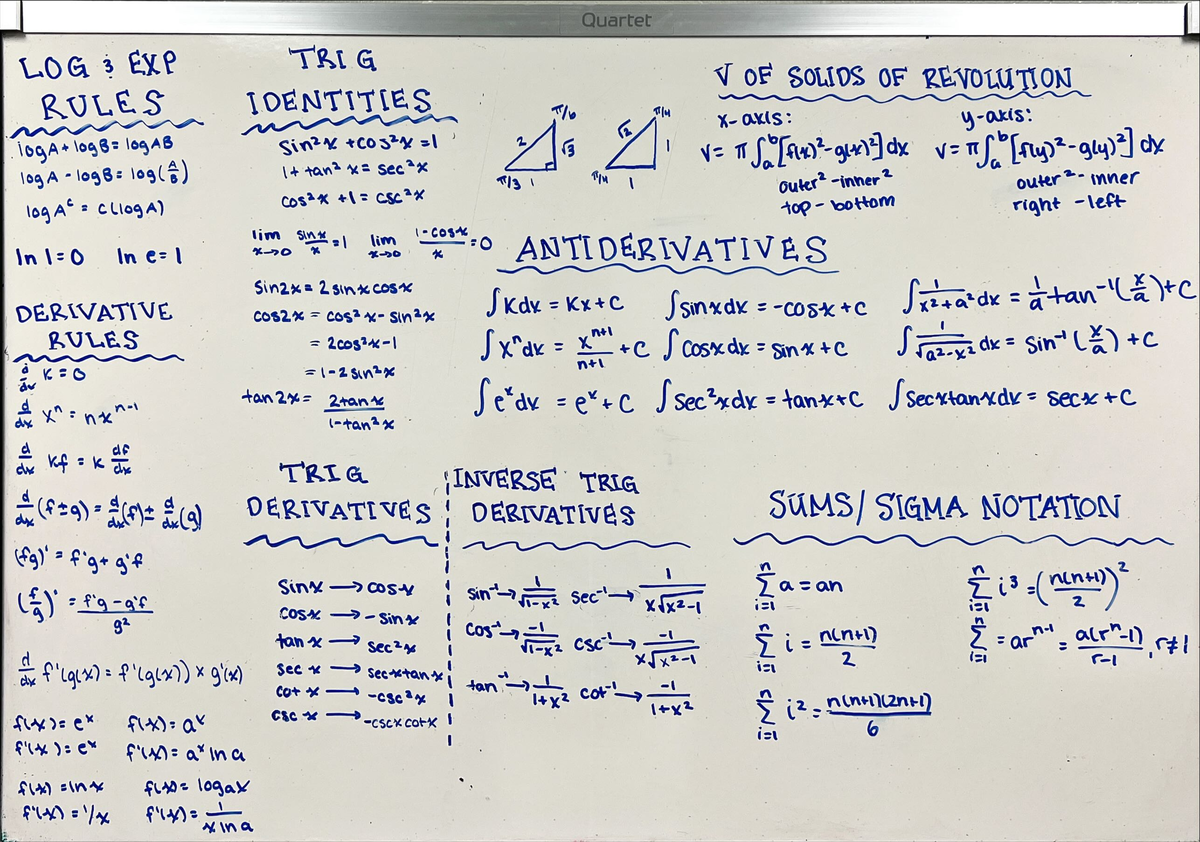 Quartet
LOG & EXP
RULES
logA + logB = logAB
logA - logB = log(A/B)
logA^c = c(logA)
ln 1 = 0 ln e = 1
DERIVATIVE
RULES
d/dx K = 0
d/dx x^n = nx^(n-1)
d/dx Kf = K df/dx
d/dx (f ± g) = d/dx(f) ± d/dx(g)
(fg)' = f'g + g'f
(f/g)' = (f'g - g'f)/g²
d/dx f'(g(x) = f'(g(x)) × g'(x)
f(x) = e^x f(x) = a^x
f'(x) = e^x f'(x) = a^x ln a
f(x) = ln x f(x) = logax
f'(x) = 1/x f'(x) = 1/(x ln a)
TRIG
IDENTITIES
sin²x + cos²x = 1
1 + tan²x = sec²x
cos²x + 1 = csc²x
lim x→0 sinx/x = 1 lim x→0 (1-cosx)/x = 0
sin2x = 2sinxcosx
cos2x = cos²x - sin²x
= 2cos²x - 1
= 1 - 2sin²x
tan2x = 2tanx/(1-tan²x)
π/6
2 √3
π/3 1
π/4
√2 1
π/4 1
V OF SOLIDS OF REVOLUTION
x-axis:
V = π ∫_a^b [f(x)² - g(x)²] dx
outer² - inner²
top - bottom
y-axis:
V = π ∫_a^b [f(y)² - g(y)²] dx
outer² - inner
right - left
ANTIDERIVATIVES
∫Kdx = Kx + C ∫sinxdx = -cosx + C ∫1/(x²+a²) dx = 1/a tan⁻¹(x/a) + C
∫x^n dx = x^(n+1)/(n+1) + C ∫cosxdx = sinx + C ∫1/√(a²-x²) dx = sin⁻¹(x/a) + C
∫e^x dx = e^x + C ∫sec²xdx = tanx + C ∫secxtanxdx = secx + C
TRIG
DERIVATIVES
sinx → cosx
cosx → -sinx
tanx → sec²x
sec x → secxtanx
cot x → -csc²x
csc x → -cscxcotx
INVERSE TRIG
DERIVATIVES
sin⁻¹ → 1/√(1-x²) sec⁻¹ → 1/(x√(x²-1))
cos⁻¹ → -1/√(1-x²) csc⁻¹ → -1/(x√(x²-1))
tan⁻¹ → 1/(1+x²) cot⁻¹ → -1/(1+x²)
SUMS/SIGMA NOTATION
∑_{i=1}^n a = an
∑_{i=1}^n i = n(n+1)/2
∑_{i=1}^n i² = n(n+1)(2n+1)/6
∑_{i=1}^n i³ = (n(n+1)/2)²
∑_{i=1}^n = ar^(n-1) = a(r^n-1)/(r-1), r≠1